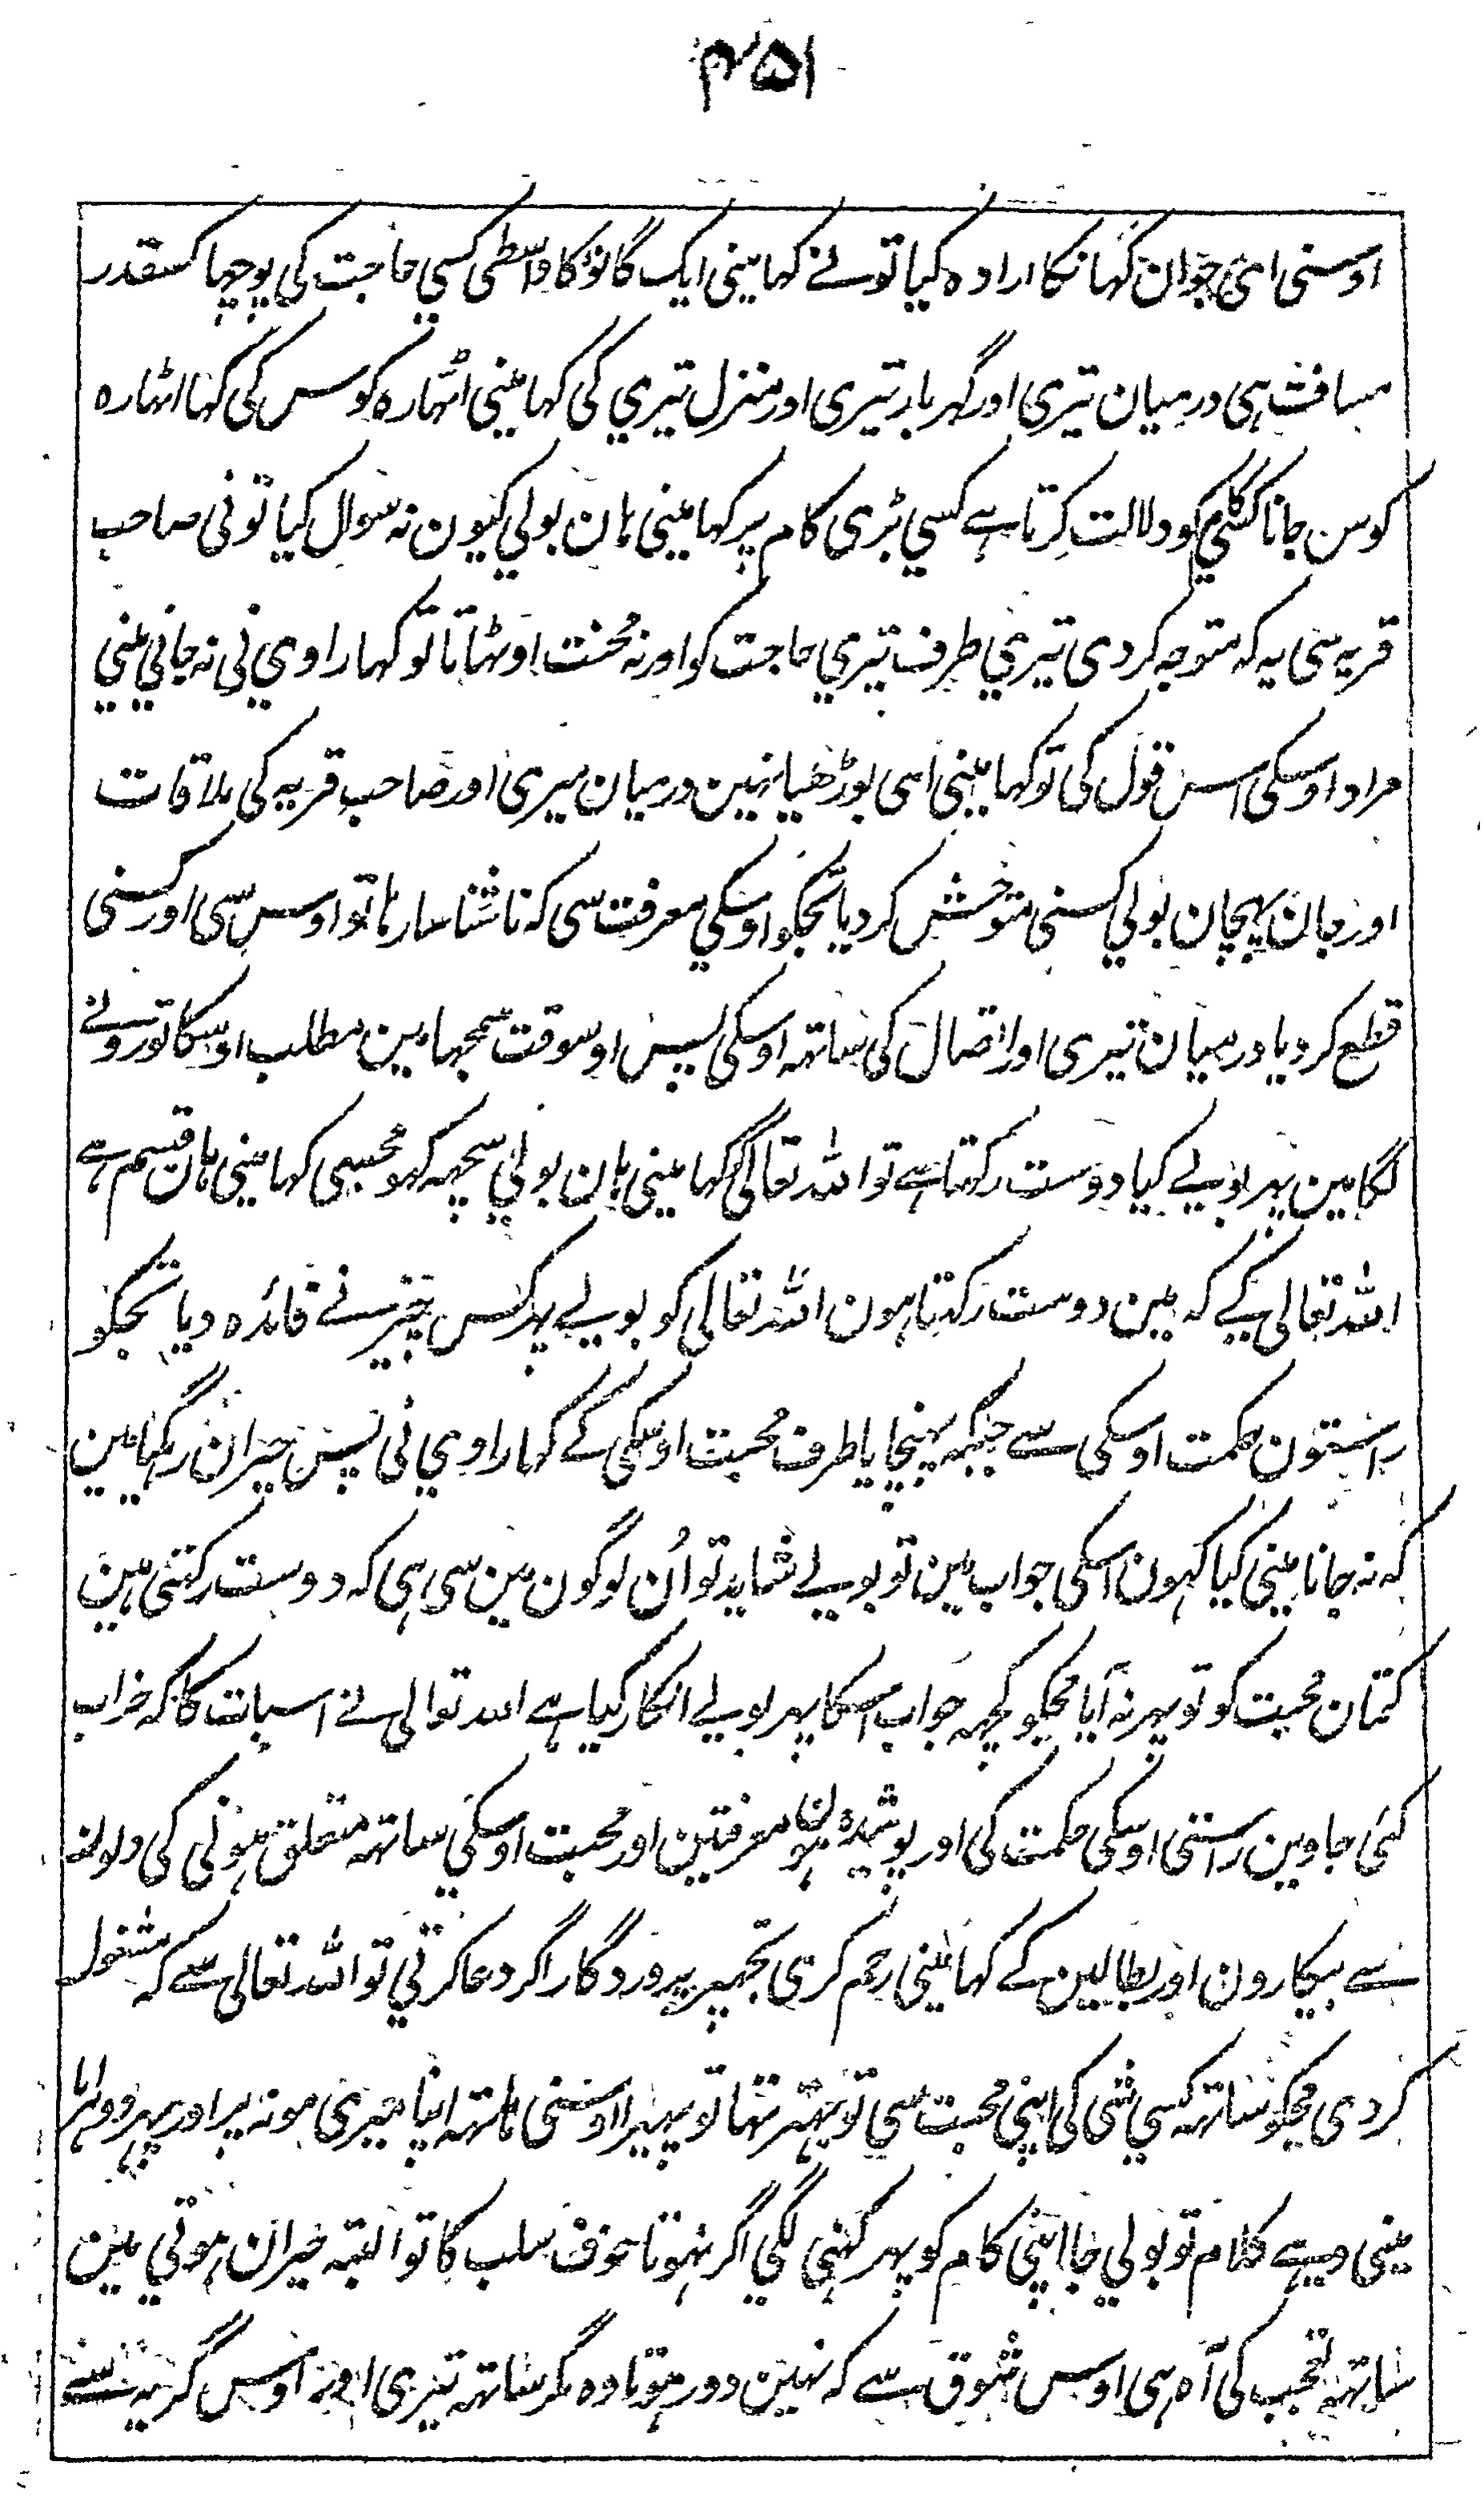 ۳۵۱
اوسنی ای جوان کہانکا ارادہ کیا تو نے کہا مینی ایک گانؤ کا واسطی کسی حاجت کی پوچہا کسقدر
مسافت ہی درمیان تیری اور گہربار تیری اور منزل تیری کی کہا مینی اٹہارہ کوس کی کہا اٹہارہ
کوس جانا کو دلالت کرتا ہے کسی بڑی کام پر کہا مینی ہان بولی کیون نہ سوال کیا تو نی صاحب
قریہ سی یہ کہ متوجہ کر دی تیری طرف تیری حاجت کو اور نہ محنت اوٹہاتا تو کہا راوی نی نہ جانی مینی
مراد اوسکی اس قول کی تو کہا مینی ای بوڑھیا نہین درمیان میری اور صاحب قریہ کی ملاقات
اور جان پہچان بولی کسنی متوحش کر دیا تجکو اوسکی معرفت سی کہ ناشناسا رہا تو اوس سی اور کسنی
قطع کر دیا درمیان تیری اور اتصال کی ساتہہ اوسکی پس اوسوقت سمجہا مین مطلب اوسکا تو رونے
لگا مین پہر بولے کیا دوست رکہتا ہے تو اللہ تعالی کو کہا مینی ہان بولی سچہہ کہو مجسی کہا مینی ہان قسم ہے
اللہ تعالی کے کہ مین دوست رکہتا ہون اللہ تعالی کو بولے پہر کس چیز نے فائدہ دیا تجکو
رستون حکمت اوسکی سے جبکہ پہنچایا طرف محبت اوسکی کے کہا راوی نی پس حیران رہگیا مین
کہ نہ جانا مینی کیا کہون اسکی جواب مین تو بولے شاید تو اُن لوگون مین سی ہی کہ دوست رکتی ہین
کتمان محبت کو تو پہر نہ آیا مجکو کچہہ جواب اسکا پہر بولے انکار کیا ہے اللہ توالی نے اسبات کا کہ خراب
کئی جاوین رستی اوسکی حکمت کی اور پوشیدہ ہونا معرفتین اور محبت اوسکی ساتہہ متعلق ہونی کی دلون
سے بیکارون اور بطالین کے کہا مینی رحم کری تجہپر پروردگار اگر دعا کرتی تو اللہ تعالی سے کہ مشغول
کر دی مجکو ساتہہ کسی شی کی اپنی محبت سی تو بہتر تہا تو پہیرا اوسنی ہاتہہ اپنا میری مونہ پر اور پہر دوہرایا
مینی وہے کلام تو بولی جا اپنی کام کو پہر کہنی لگی اگر نہوتا خوف سلب کا تو البتہ حیران ہوتی مین
ساتہہ تعجب کی آہ ہی اوس شوق سے کہ نہین دور ہوتا وہ مگر ساتہہ تیری اور اوس گریہ سے